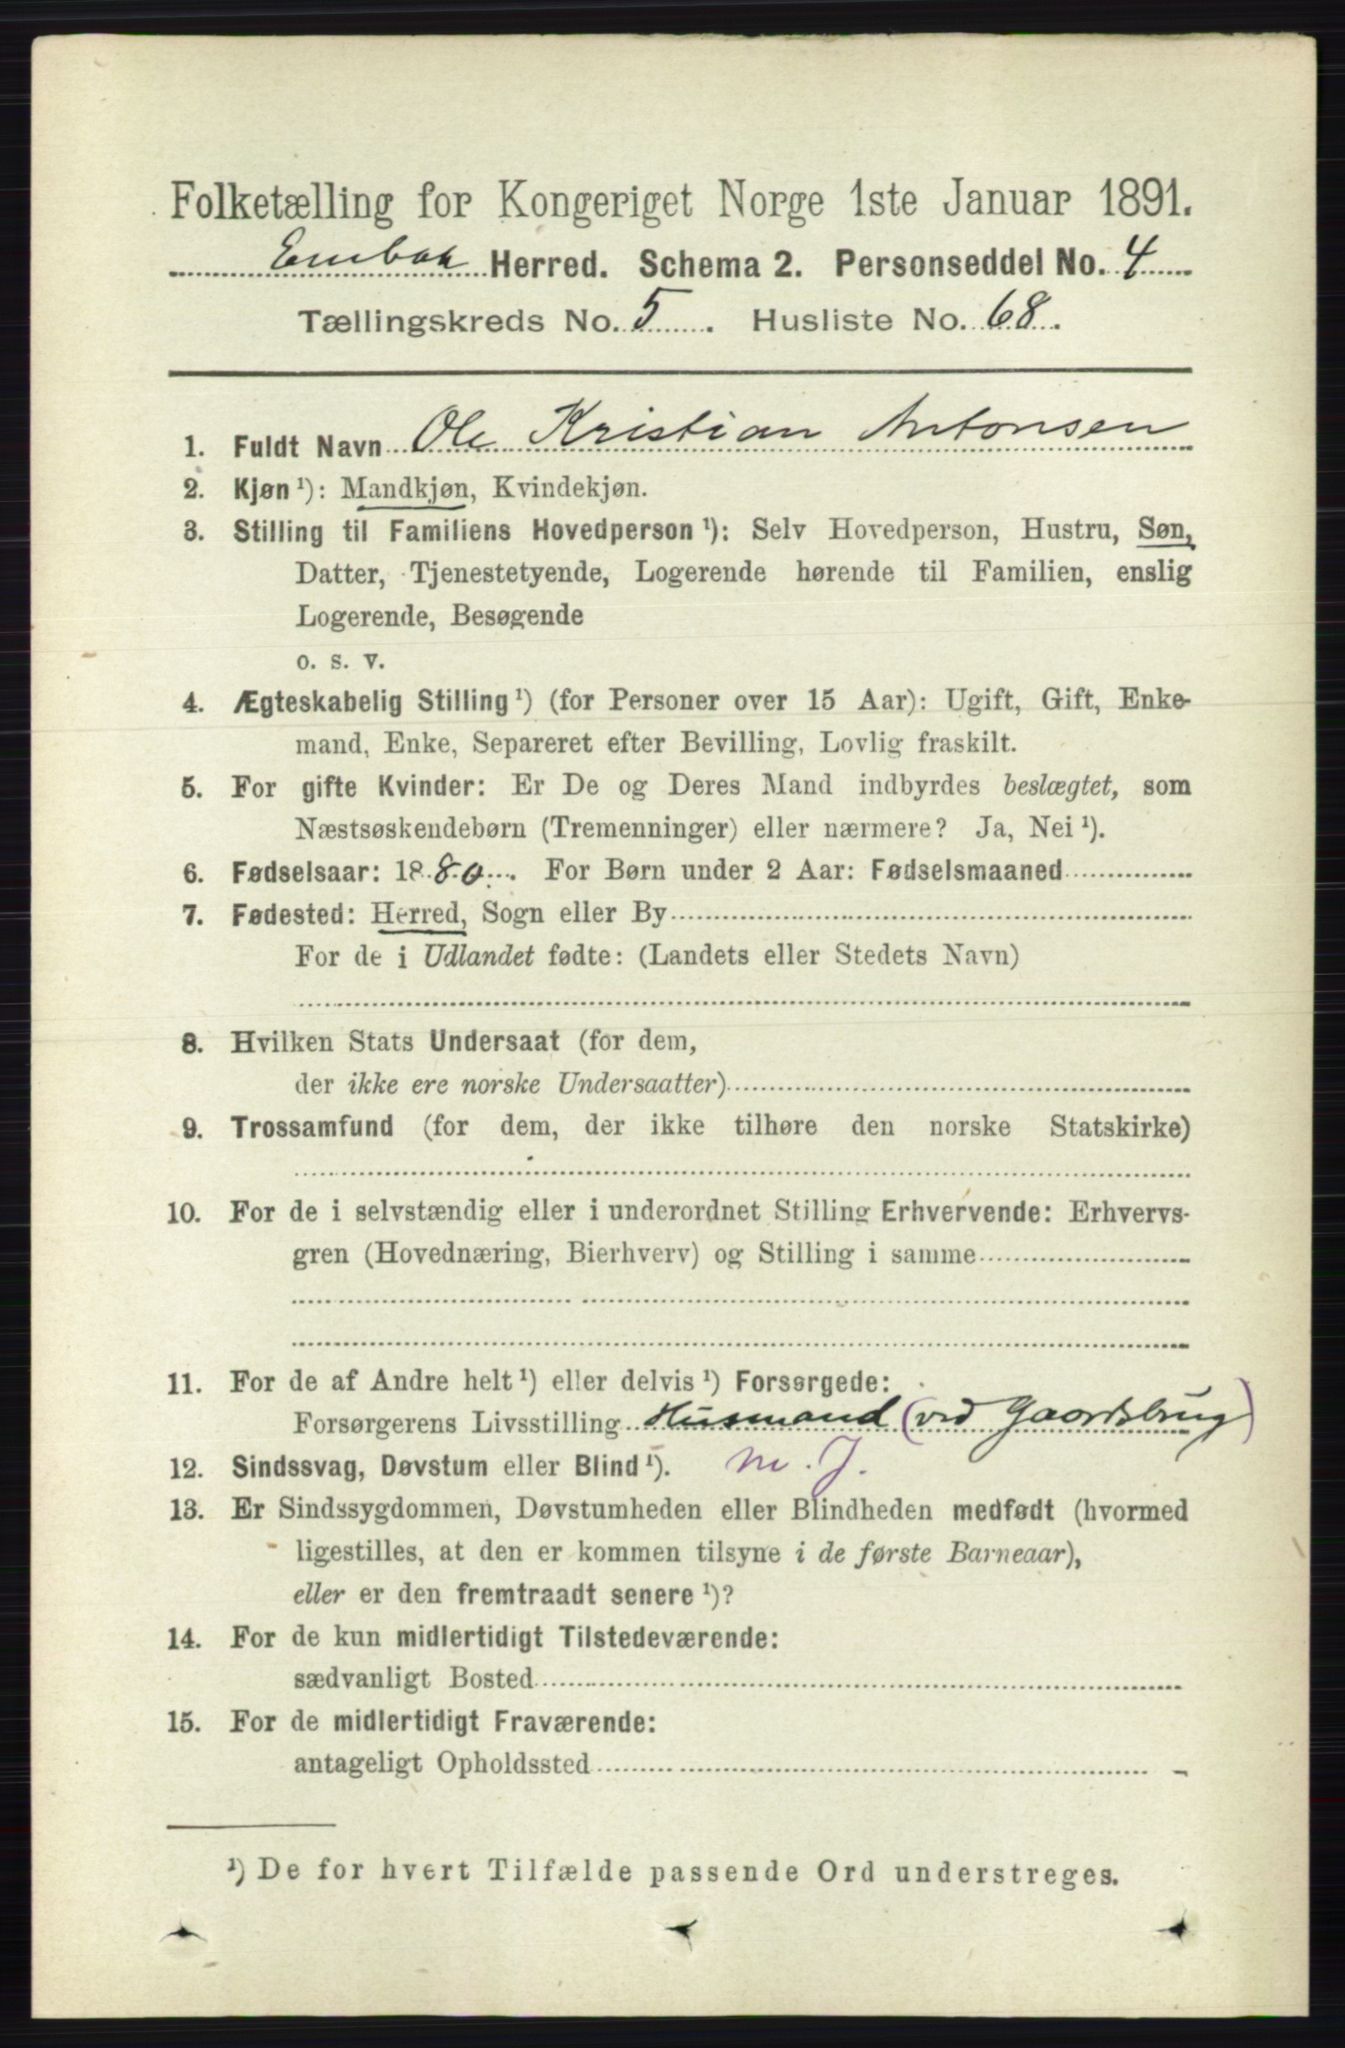 Folketælling for Kongeriget Norge 1ste Januar 1891.
Herred. Schema 2. Personseddel No. 4
Tællingskreds No. 5. Husliste No. 68.
1. Fuldt Navn Ole Kristian Antonsen
2. Kjøn ¹): Mandkjøn, Kvindekjøn.
3. Stilling til Familiens Hovedperson ¹): Selv Hovedperson, Hustru, Søn,
Datter, Tjenestetyende, Logerende hørende til Familien, enslig
Logerende, Besøgende
o. s. v.
4. Ægteskabelig Stilling ¹) (for Personer over 15 Aar): Ugift, Gift, Enke-
mand, Enke, Separeret efter Bevilling, Lovlig fraskilt.
5. For gifte Kvinder: Er De og Deres Mand indbyrdes beslægtet, som
Næstsøskendebørn (Tremenninger) eller nærmere? Ja, Nei ¹).
6. Fødselsaar: 1880. For Børn under 2 Aar: Fødselsmaaned
7. Fødested: Herred, Sogn eller By
For de i Udlandet fødte: (Landets eller Stedets Navn)
8. Hvilken Stats Undersaat (for dem,
der ikke ere norske Undersaatter)
9. Trossamfund (for dem, der ikke tilhøre den norske Statskirke)
10. For de i selvstændig eller i underordnet Stilling Erhvervende: Erhvervs-
gren (Hovednæring, Bierhverv) og Stilling i samme
11. For de af Andre helt ¹) eller delvis ¹) Forsørgede:
Forsørgerens Livsstilling Husmand (ved Gaardsbrug)
12. Sindssvag, Døvstum eller Blind ¹). m. J.
13. Er Sindssygdommen, Døvstumheden eller Blindheden medfødt (hvormed
ligestilles, at den er kommen tilsyne i de første Barneaar),
eller er den fremtraadt senere ¹)?
14. For de kun midlertidigt Tilstedeværende:
sædvanligt Bosted
15. For de midlertidigt Fraværende:
antageligt Opholdssted
¹) De for hvert Tilfælde passende Ord understreges.